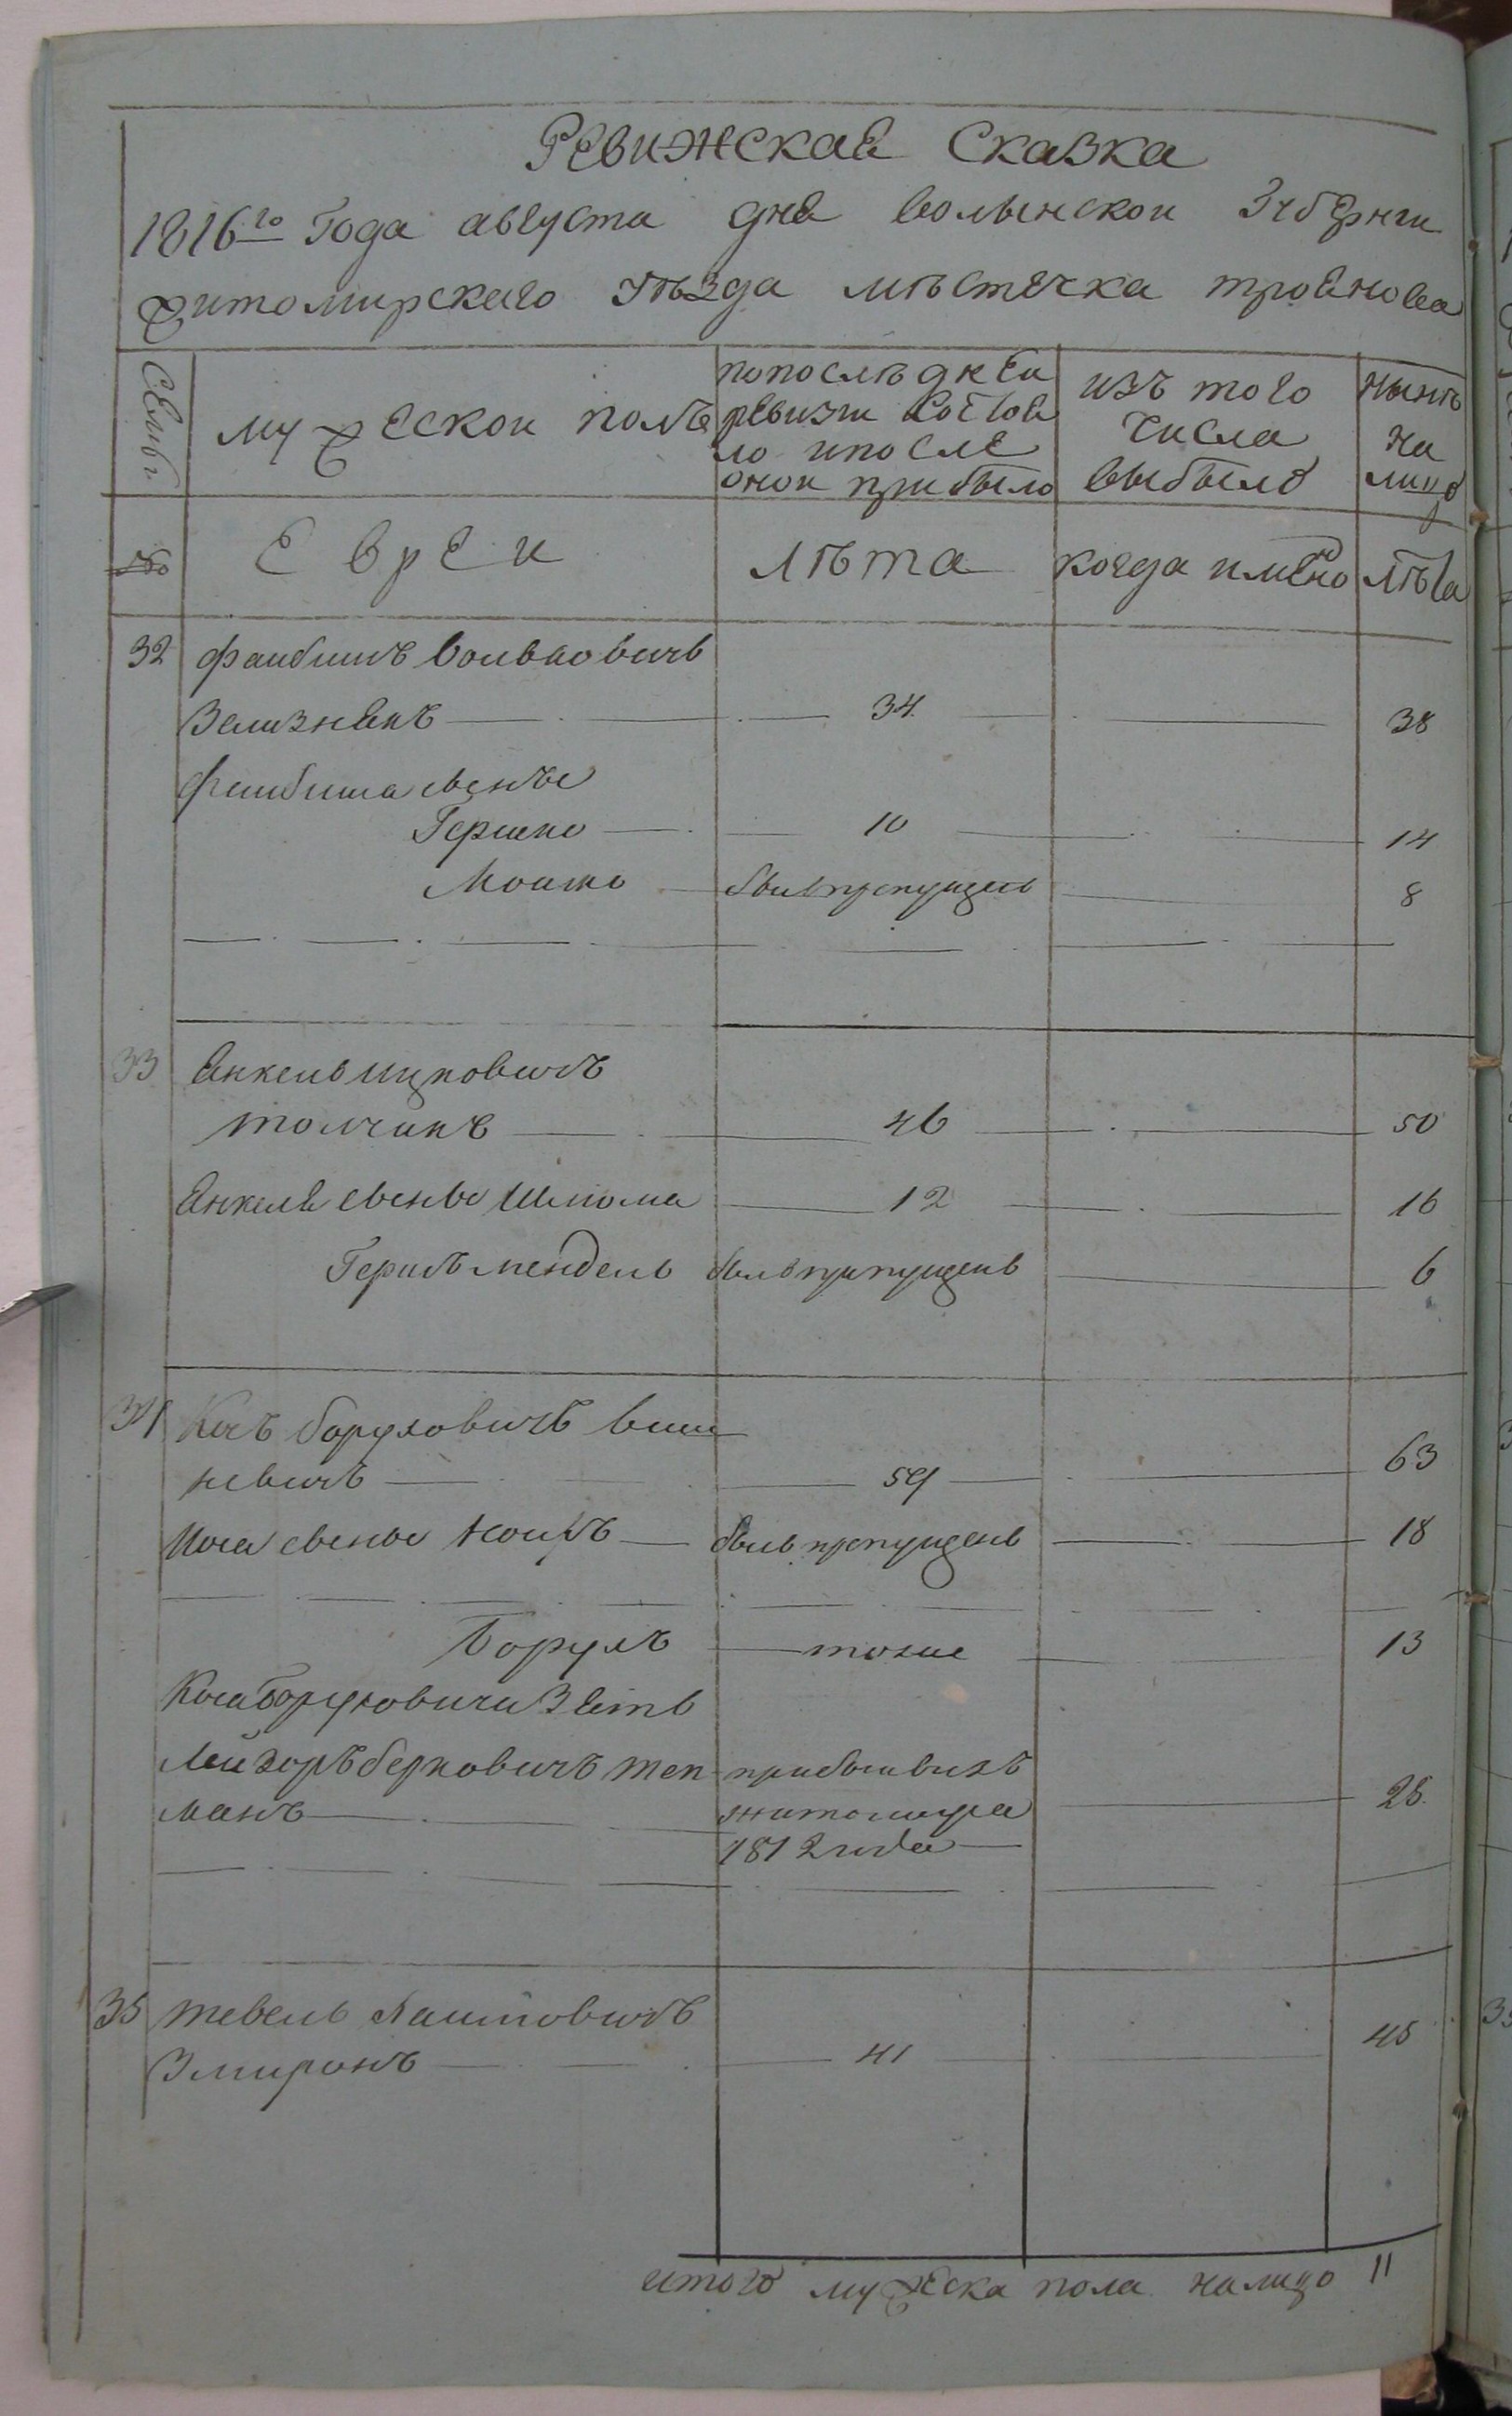 Ревижская Сказка
1816го Года августа дня волынскои Згубернги
житомирскаго уѣзда мѣстечка троянова
Семьи
мужескои полъ
попослѣднеи
ревизги состоя
ло ипосле
онои прибыло
изъ того
числа
выбыло
нынѣ
на
лицо
№
Евреи
Лѣта
когда имено
Лѣта
32 Фаибишъ Волвковичъ
Зелизнякъ 34 38
Фаибиша сынъе
Гершко 10 14
Мошко былъ пропущенъ 8
33 Янкель Ицковичъ
толчинъ 46 50
Янкеля сынъе Шлиома 12 16
Гершъ мендель былъ пропущенъ 6
34 боруховичъ виш
невичъ 59 63
сынъе былъ пропущенъ 18
Борухъ тоже 13
боруховича Зять
Лейзоръ берковичъ теп
манъ
прибылъ изъ
житомира
1812 года
28
35 тевель
Змиронъ 41 45
итого мужеска пола налицо 11